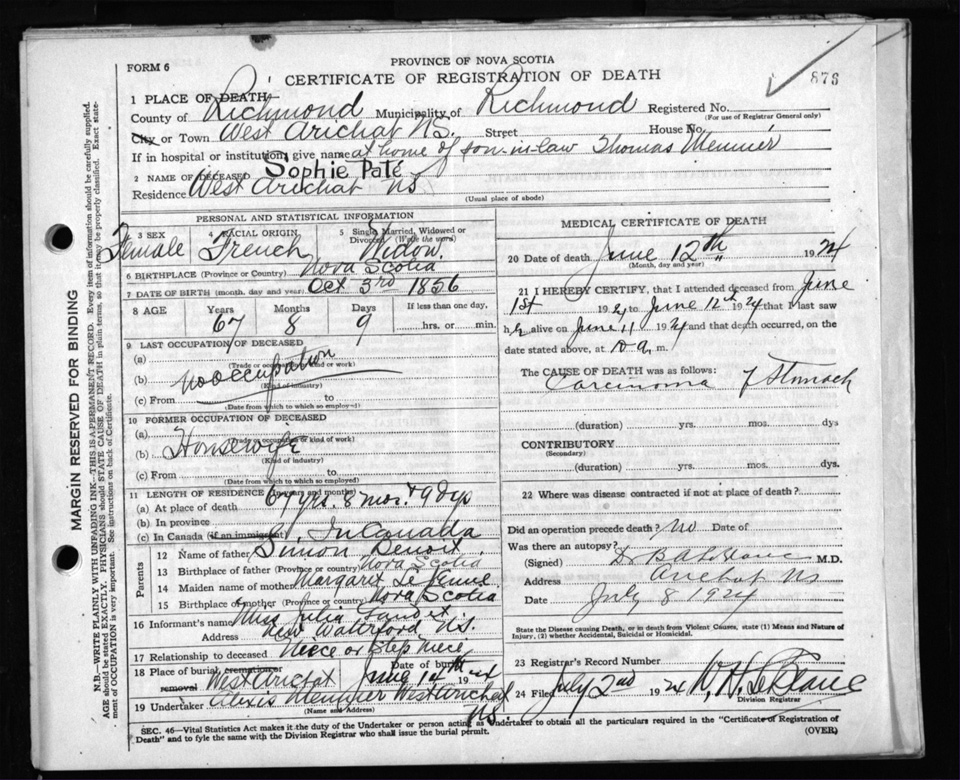 FORM 6
PROVINCE OF NOVA SCOTIA
CERTIFICATE OF REGISTRATION OF DEATH
876
1 PLACE OF DEATH—
County of Richmond Municipality of Richmond Registered No.
(For use of Registrar General only)
City or Town West Arichat N.S. Street House No.
If in hospital or institution, give name at home of son-in-law Thomas
2 NAME OF DECEASED Sophie Paté
Residence West Arichat NS
(Usual place of abode)
PERSONAL AND STATISTICAL INFORMATION
3 SEX Female
4 RACIAL ORIGIN French
5 Single, Married, Widowed or Divorced (Write the word) Widow.
6 BIRTHPLACE (Province or Country) Nova Scotia
7 DATE OF BIRTH (month, day and year) Oct 3rd 1856
8 AGE Years Months Days If less than one day,
67 8 9 hrs. or min.
9 LAST OCCUPATION OF DECEASED
(a)
(Trade or occupation or kind of work)
(b) no occupation
(Kind of industry)
(c) From to
(Date from which to which so employed)
10 FORMER OCCUPATION OF DECEASED
(a)
(Trade or occupation or kind of work)
(b) Housewife
(Kind of industry)
(c) From to
(Date from which to which so employed)
11 LENGTH OF RESIDENCE (in years and months)
(a) At place of death 67 yrs. 8 mos. + 9 dys
(b) In province
(c) In Canada (if an immigrant) In Canada
Parents
12 Name of father Simon Benoit
13 Birthplace of father (Province or country) Nova Scotia
14 Maiden name of mother Margaret
15 Birthplace of mother (Province or country) Nova Scotia
16 Informant's name Miss Julia
Address New Waterford N.S.
17 Relationship to deceased Niece or Step niece
18 Place of burial, cremation or removal West Arichat Date of burial June 14th 1924
19 Undertaker Alexis West Arichat
(Name and Address) NS
MEDICAL CERTIFICATE OF DEATH
20 Date of death June 12th 1924
(Month, day and year)
21 I HEREBY CERTIFY, that I attended deceased from June
1st 192 to June 12th 1924 that I last saw
h alive on June 11 1924 and that death occurred, on the
date stated above, at 10 a. m.
The CAUSE OF DEATH was as follows:
Carcinoma of Stomach
(duration) yrs. mos. dys
CONTRIBUTORY
(Secondary)
(duration) yrs. mos. dys.
22 Where was disease contracted if not at place of death?
Did an operation precede death? no Date of
Was there an autopsy?
(Signed) Dr M.D.
Address Arichat NS
Date July 8 1924
State the Disease causing Death, or in death from Violent Causes, state (1) Means and Nature of
Injury, (2) whether Accidental, Suicidal or Homicidal.
23 Registrar's Record Number
24 Filed July 2nd 1924
Division Registrar
SEC. 46—Vital Statistics Act makes it the duty of the Undertaker or person acting as Undertaker to obtain all the particulars required in the "Certificate of Registration of
Death" and to fyle the same with the Division Registrar who shall issue the burial permit. (OVER)
MARGIN RESERVED FOR BINDING
N.B.—WRITE PLAINLY WITH UNFADING INK—THIS IS A PERMANENT RECORD. Every item of information should be carefully supplied.
AGE should be stated EXACTLY. PHYSICIANS should STATE CAUSE OF DEATH in plain terms, so that it may be properly classified. Exact state-
ment of OCCUPATION is very important. See instructions on back of Certificate.